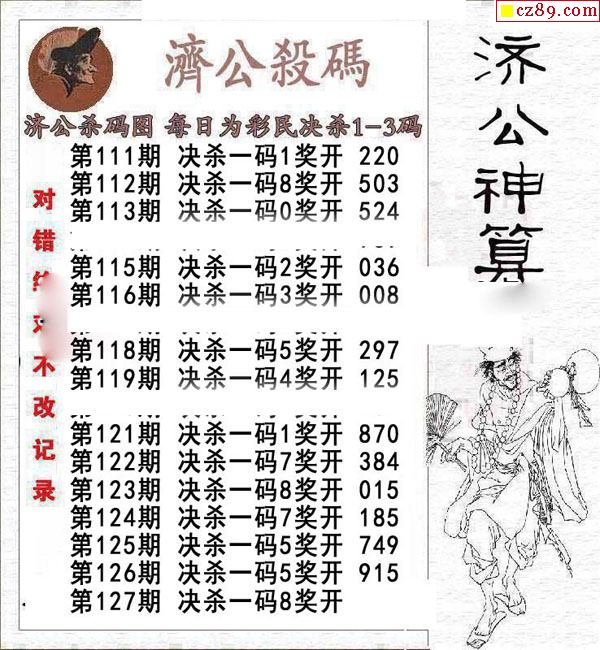 cz89.com
濟公殺碼
济公杀码图 每日为彩民决杀1-3码
第111期 决杀一码1奖开 220
第112期 决杀一码8奖开 503
第113期 决杀一码0奖开 524
第115期 决杀一码2奖开 036
第116期 决杀一码3奖开 008
第118期 决杀一码5奖开 297
第119期 决杀一码4奖开 125
第121期 决杀一码1奖开 870
第122期 决杀一码7奖开 384
第123期 决杀一码8奖开 015
第124期 决杀一码7奖开 185
第125期 决杀一码5奖开 749
第126期 决杀一码5奖开 915
第127期 决杀一码8奖开
对错 不改记录
济公神算